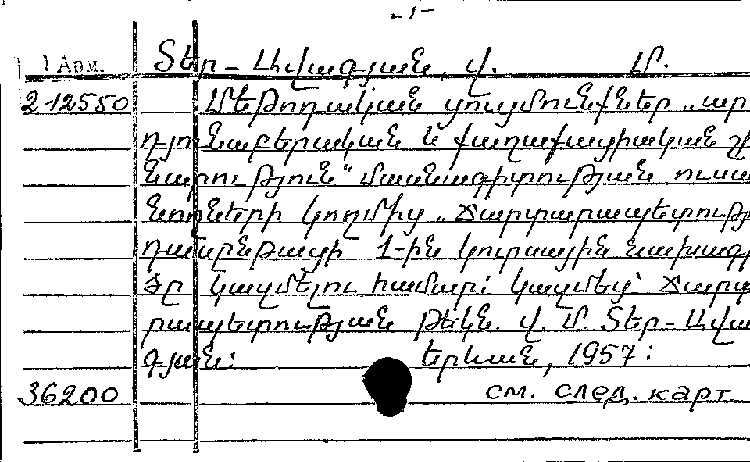 - 1 -
1 Арм. Տեր-Ավագյան, Վ. Մ.
212550 Մեթոդական ցուցմունքներ „ար
դյունաբերական և քաղաքացիական շի
նարություն" մասնագիտության ուսա
նողների կողմից „Ճարտարապետությ
դասընթացի 1-ին կուրսային նախագ
ծը կազմելու համար: Կազմեց՝ Ճարտ
րապետության թեկն. Վ. Մ. Տեր-Ավա
գյան: Երևան, 1957:
36200 см. след. карт